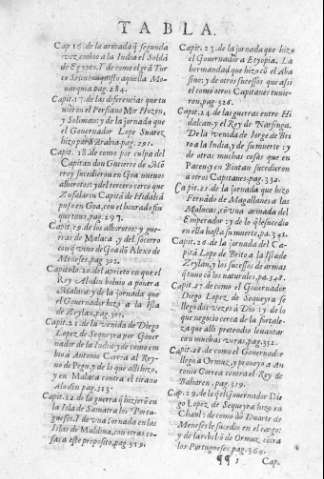 TABLA.
Cap. 16. de la armada q̃ segunda
vez embio a la India el Soldã
de Egypto. Y de como el grã Tur
co señoreaquella Mo-
narquia. pag. 284.
Capit. 17. de las diferencias que tu
uieron el Persiano Mir Hozen,
y Soliman: y de la jornada que
el Gouernador Lopo Suarez
hizo para Arabia. pag. 291.
Capit. 18. de como por culpa del
Capitan don Gutierre de Mõ
roy sucedieron en Goa nueuos
alborotos: y del tercero cerco que
Zofalarin Capitã de Hidalcã
puso en Goa, con el honrado fin
que tuuo. pag. 297.
Capit. 19. de los alborotos: y gue-
rras de Malaca y del socorro
con q̃ vino de Goa dõ Alexo de
Meneses. pag. 302.
Capitulo. 20. del aprieto en que el
Rey Alodin boluio a poner a
Malaca: y de la jornada que
el Gouernador hizo a la Isla
de Zeylan. pag. 307.
Capit. 21. de la venida de Diego
Lopez de Sequeyra por Gouer
nador de la India: y de como em
bia a Antonio Correa al Rey-
no de Pegu, y de lo que alli hizo,
y en Malaca contra el tirano
Alodin. pag. 313.
Capit. 22. de la guerra q̃ hizierõ en
la Isla de Samatra los Portu-
gueses. Y de vna jornada en las
Islas de Maldiua, con otras co-
sas a este proposito. pag. 319.
Capit. 23. de la jornada que hizo
el Gouernador a Etyopia. La
hermandad que hizo cõ el Aba
sino: y de otros sucessos que assi
el como otros Capitanes tuuie-
ron. pag. 326.
Capit. 24. de las guerras entre Hi
dalcan: y el Rey de Narsinga.
De la venida de Jorge de Bri
to a la India, y de su muerte: y
de otras muchas cosas que en
Pacen y en Bintan sucedieron
a otros Capitanes. pag. 332.
Capit. 25. de la jornada que hizo
Fernãdo de Magallanes a las
Malucas, cõ vna armada del
Emperador: y de lo q̃ le sucedio
en ella hasta su muerte. pa. 341.
Capit. 26. de la jornada del Ca-
pitã Lopo de Brito a la Isla de
Zeylan, y los sucessos de armas
q̃ tuuo cõ los naturales. pa. 348.
Capit. 27. de como el Gouernador
Diego Lopez de Sequeyra se
llego dos vezes a Dio: y de lo
que negocio cerca de la fortale-
za que alli pretendio leuantar
con muchas veras. pag. 352.
Capit. 28. de como el Gouernador
llego a Ormuz, y proueyo a An
tonio Correa contra el Rey de
Baharen. pag. 359.
Cap. 29. de lo que el Gouernador Die
go Lopez de Sequeyra hizo en
Chaul: de como dõ Duarte de
Meneses le sucedio en el cargo:
y de la rebeliõ de Ormuz, cõtra
los Portugueses. pag. 364.
¶¶ 2 Cap.